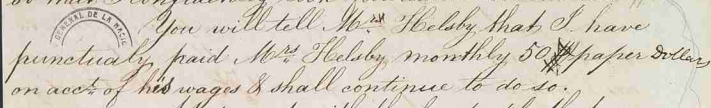 GENERAL DE LA NACIÓN
You will tell Mrs Helsby, that I have
punctually, paid Mrs Helsby monthly 50 paper Dollars
on acct. of his wages & shall continue to do so.